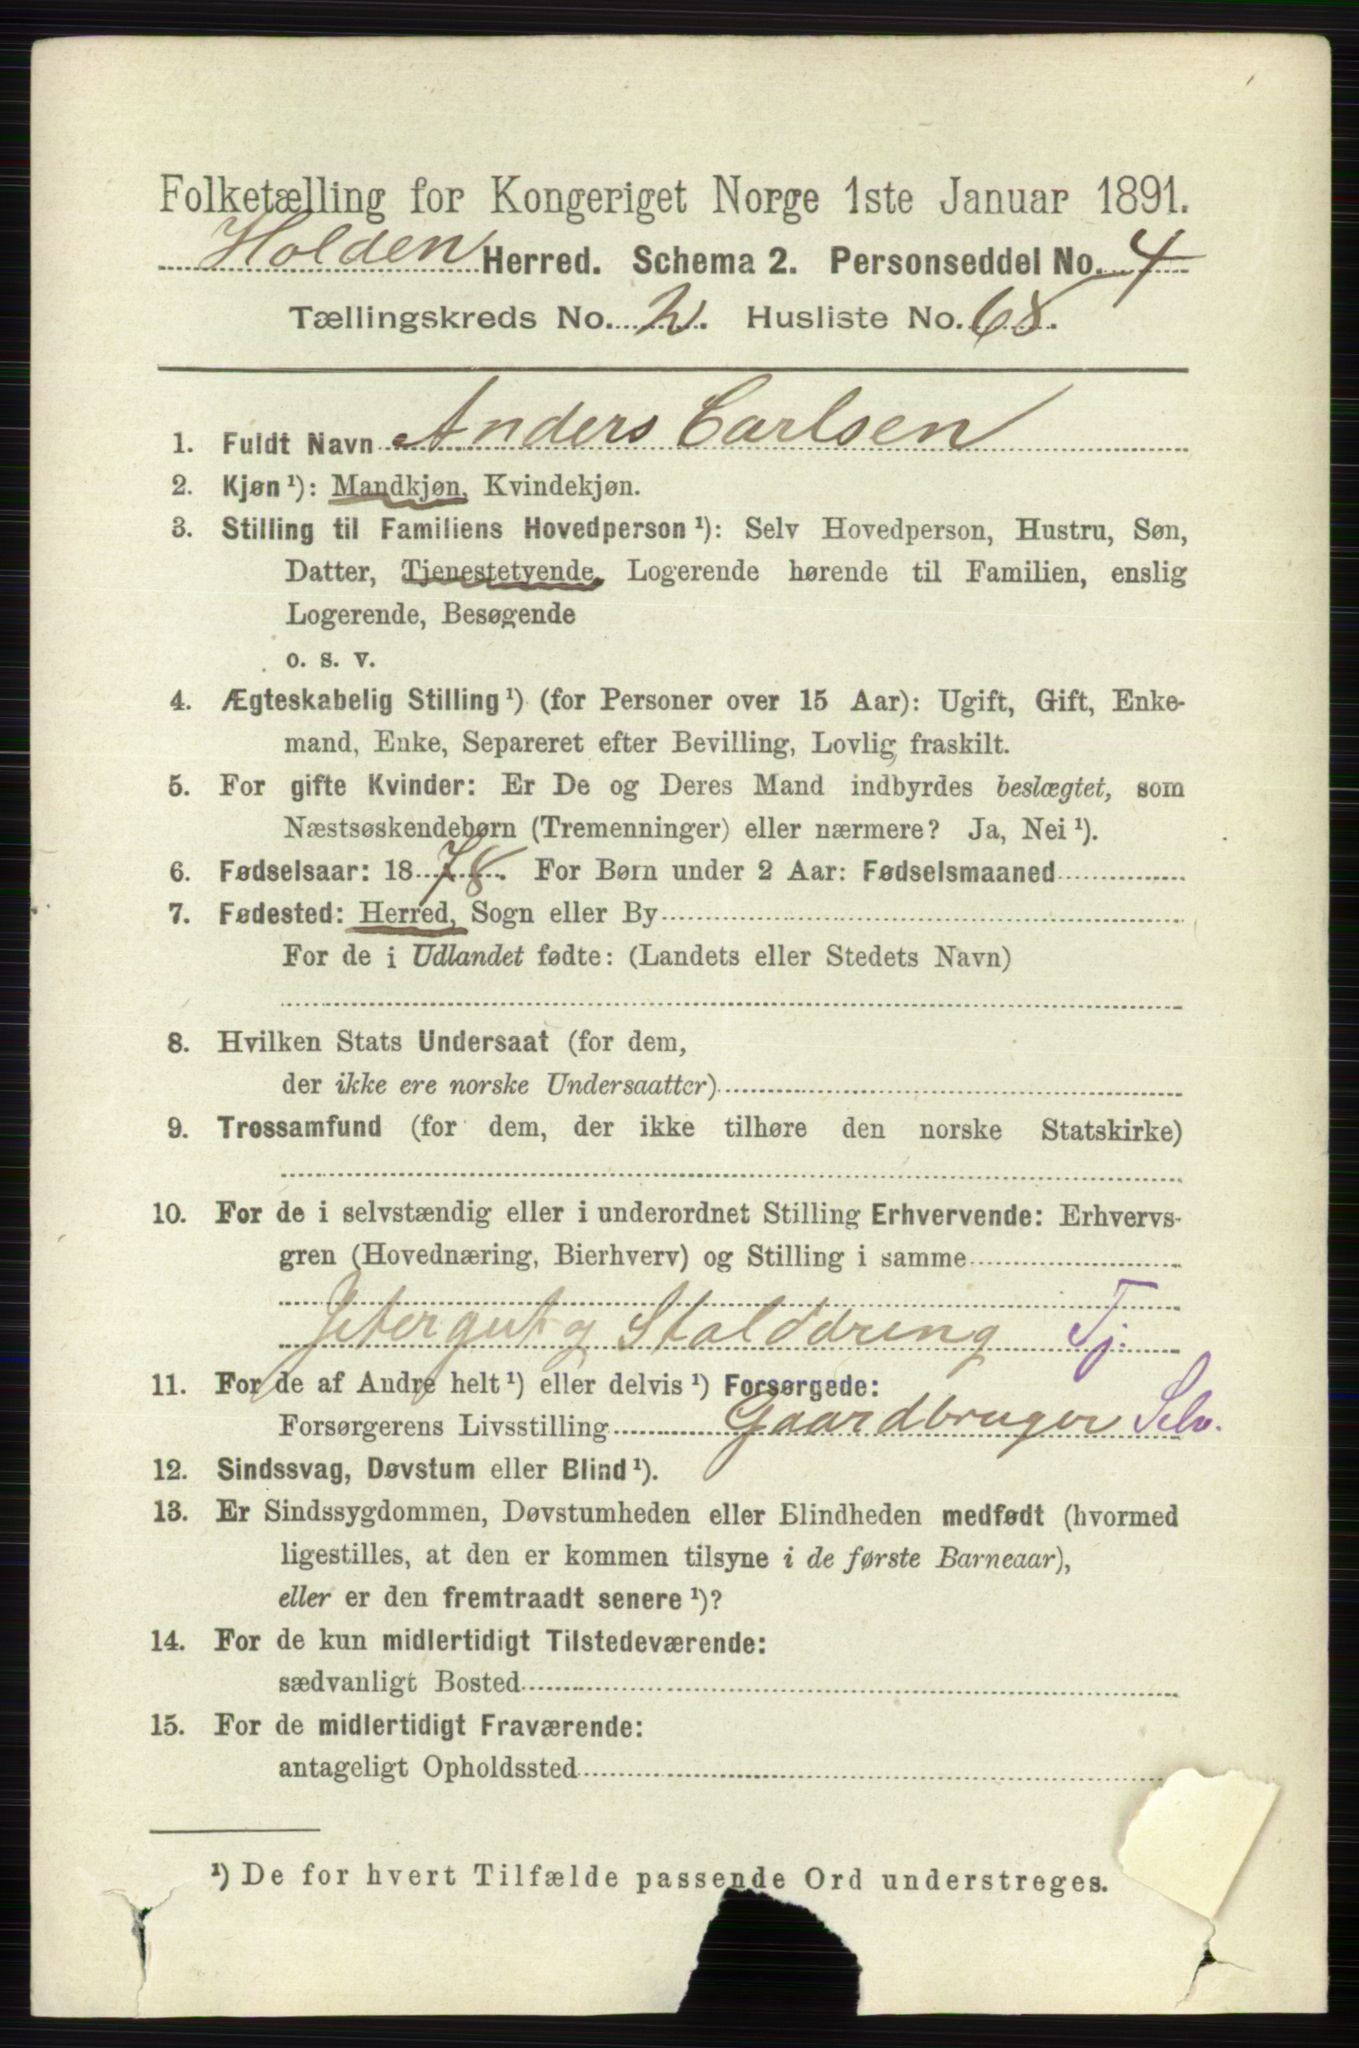 Folketælling for Kongeriget Norge 1ste Januar 1891.
Holden Herred. Schema 2. Personseddel No. 4
Tællingskreds No. 2. Husliste No. 68.
1. Fuldt Navn Anders Carlsen
2. Kjøn ¹): Mandkjøn, Kvindekjøn.
3. Stilling til Familiens Hovedperson ¹): Selv Hovedperson, Hustru, Søn,
Datter, Tjenestetyende, Logerende hørende til Familien, enslig
Logerende, Besøgende
o. s. v.
4. Ægteskabelig Stilling ¹) (for Personer over 15 Aar): Ugift, Gift, Enke-
mand, Enke, Separeret efter Bevilling, Lovlig fraskilt.
5. For gifte Kvinder: Er De og Deres Mand indbyrdes beslægtet, som
Næstsøskendebørn (Tremenninger) eller nærmere? Ja, Nei ¹).
6. Fødselsaar: 1878. For Børn under 2 Aar: Fødselsmaaned
7. Fødested: Herred, Sogn eller By
For de i Udlandet fødte: (Landets eller Stedets Navn)
8. Hvilken Stats Undersaat (for dem,
der ikke ere norske Undersaatter)
9. Trossamfund (for dem, der ikke tilhøre den norske Statskirke)
10. For de i selvstændig eller i underordnet Stilling Erhvervende: Erhvervs-
gren (Hovednæring, Bierhverv) og Stilling i samme
Jetergut og Stalddreng Tj.
11. For de af Andre helt ¹) eller delvis ¹) Forsørgede:
Forsørgerens Livsstilling Gaardbruger Selv.
12. Sindssvag, Døvstum eller Blind ¹).
13. Er Sindssygdommen, Døvstumheden eller Blindheden medfødt (hvormed
ligestilles, at den er kommen tilsyne i de første Barneaar),
eller er den fremtraadt senere ¹)?
14. For de kun midlertidigt Tilstedeværende:
sædvanligt Bosted
15. For de midlertidigt Fraværende:
antageligt Opholdssted
¹) De for hvert Tilfælde passende Ord understreges.